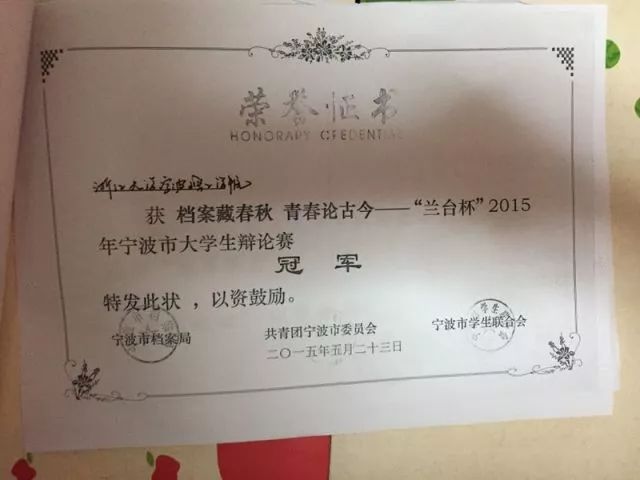 荣誉证书
HONORARY CREDENTIAL
浙江大学宁波理工学院
获 档案藏春秋 青春论古今——“兰台杯”2015
年宁波市大学生辩论赛
冠军
特发此状 ，以资鼓励。
宁波市档案局 共青团宁波市委员会 宁波市学生联合会
二〇一五年五月二十三日